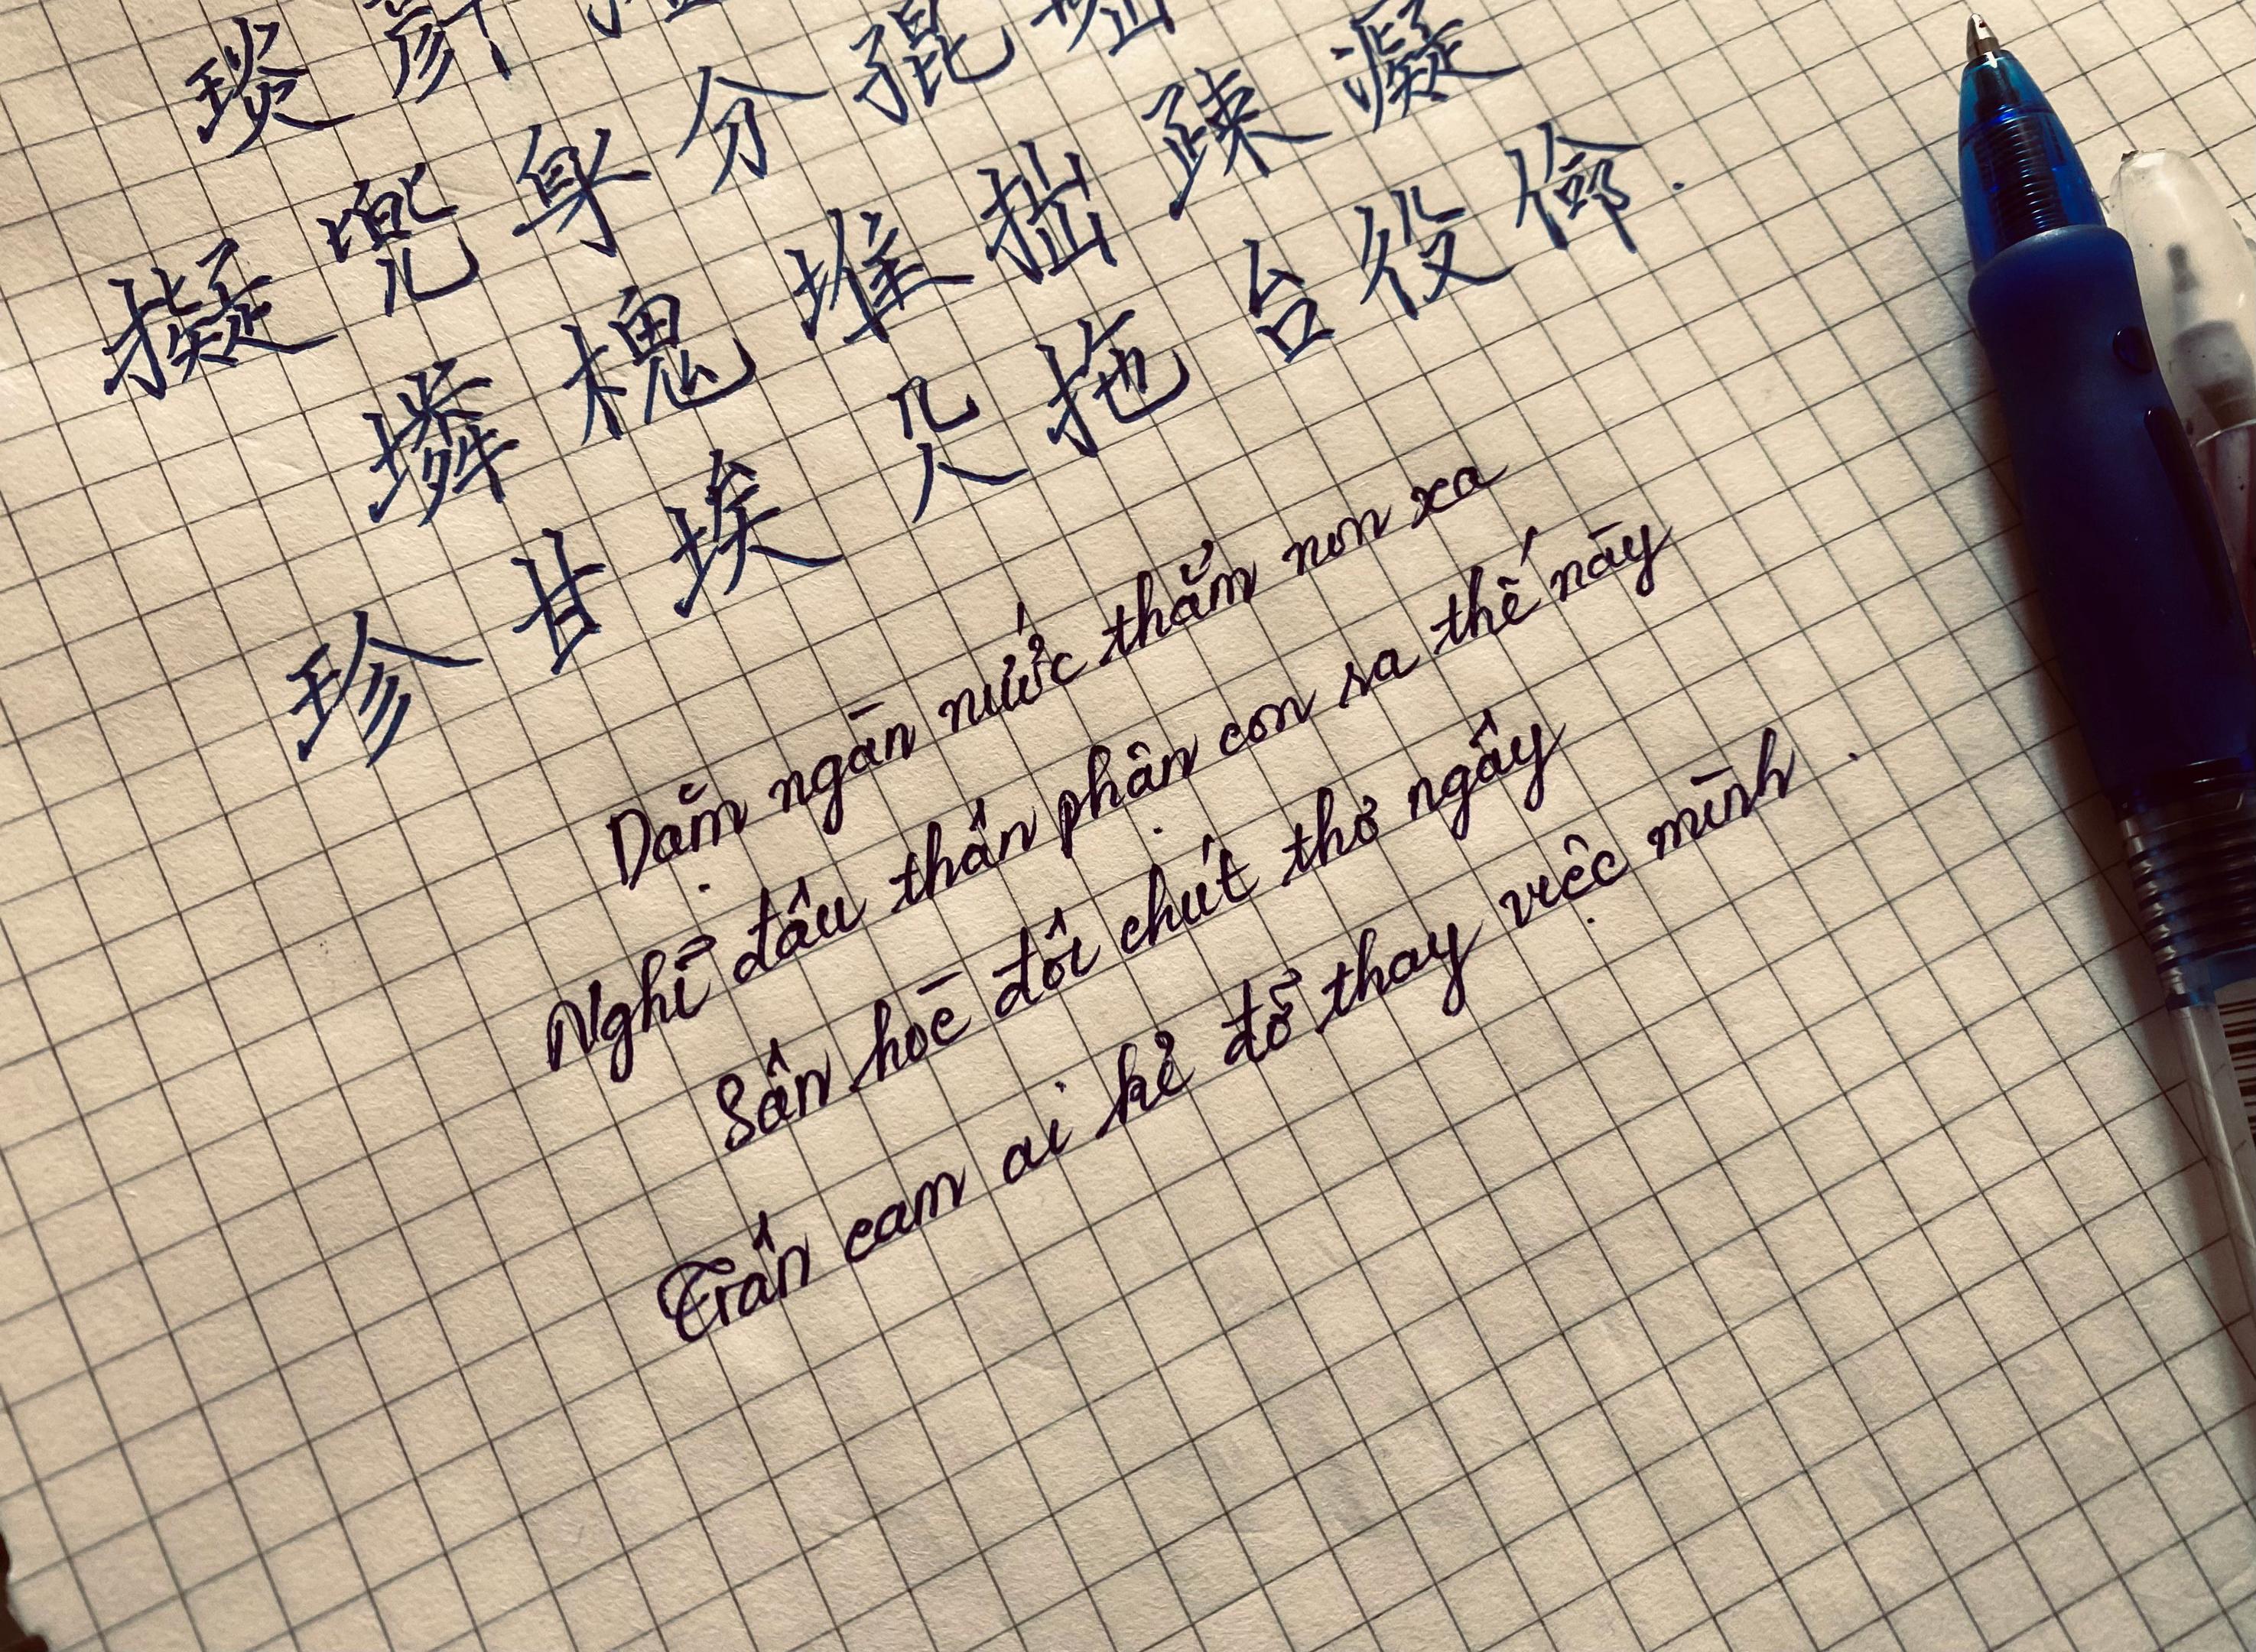 琰
擬 兜 身 分
壣 槐 堆 拙 疎
珍 甘 埃 拖 台 役
Dặm ngàn nước thẳm non xa
Nghĩ đâu thân phận con ra thế này
Sân hoè đôi chút thơ ngây
Trân cam ai kẻ đỡ thay việc mình .